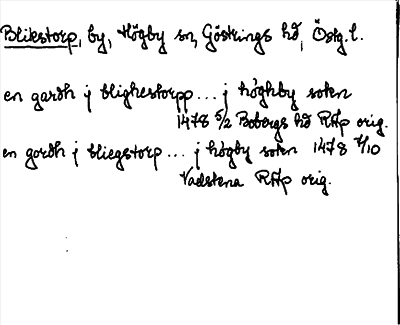 Blikstorp, by, Högby sn, Göstrings hd, Östg.l.
en gardh j blighestorpp... j höghby sokn
1478 5/2 Bobergs hd RAp orig.
en gordh j bliegstorp... j högby sokn 1478 4/10
Vadstena RAp orig.